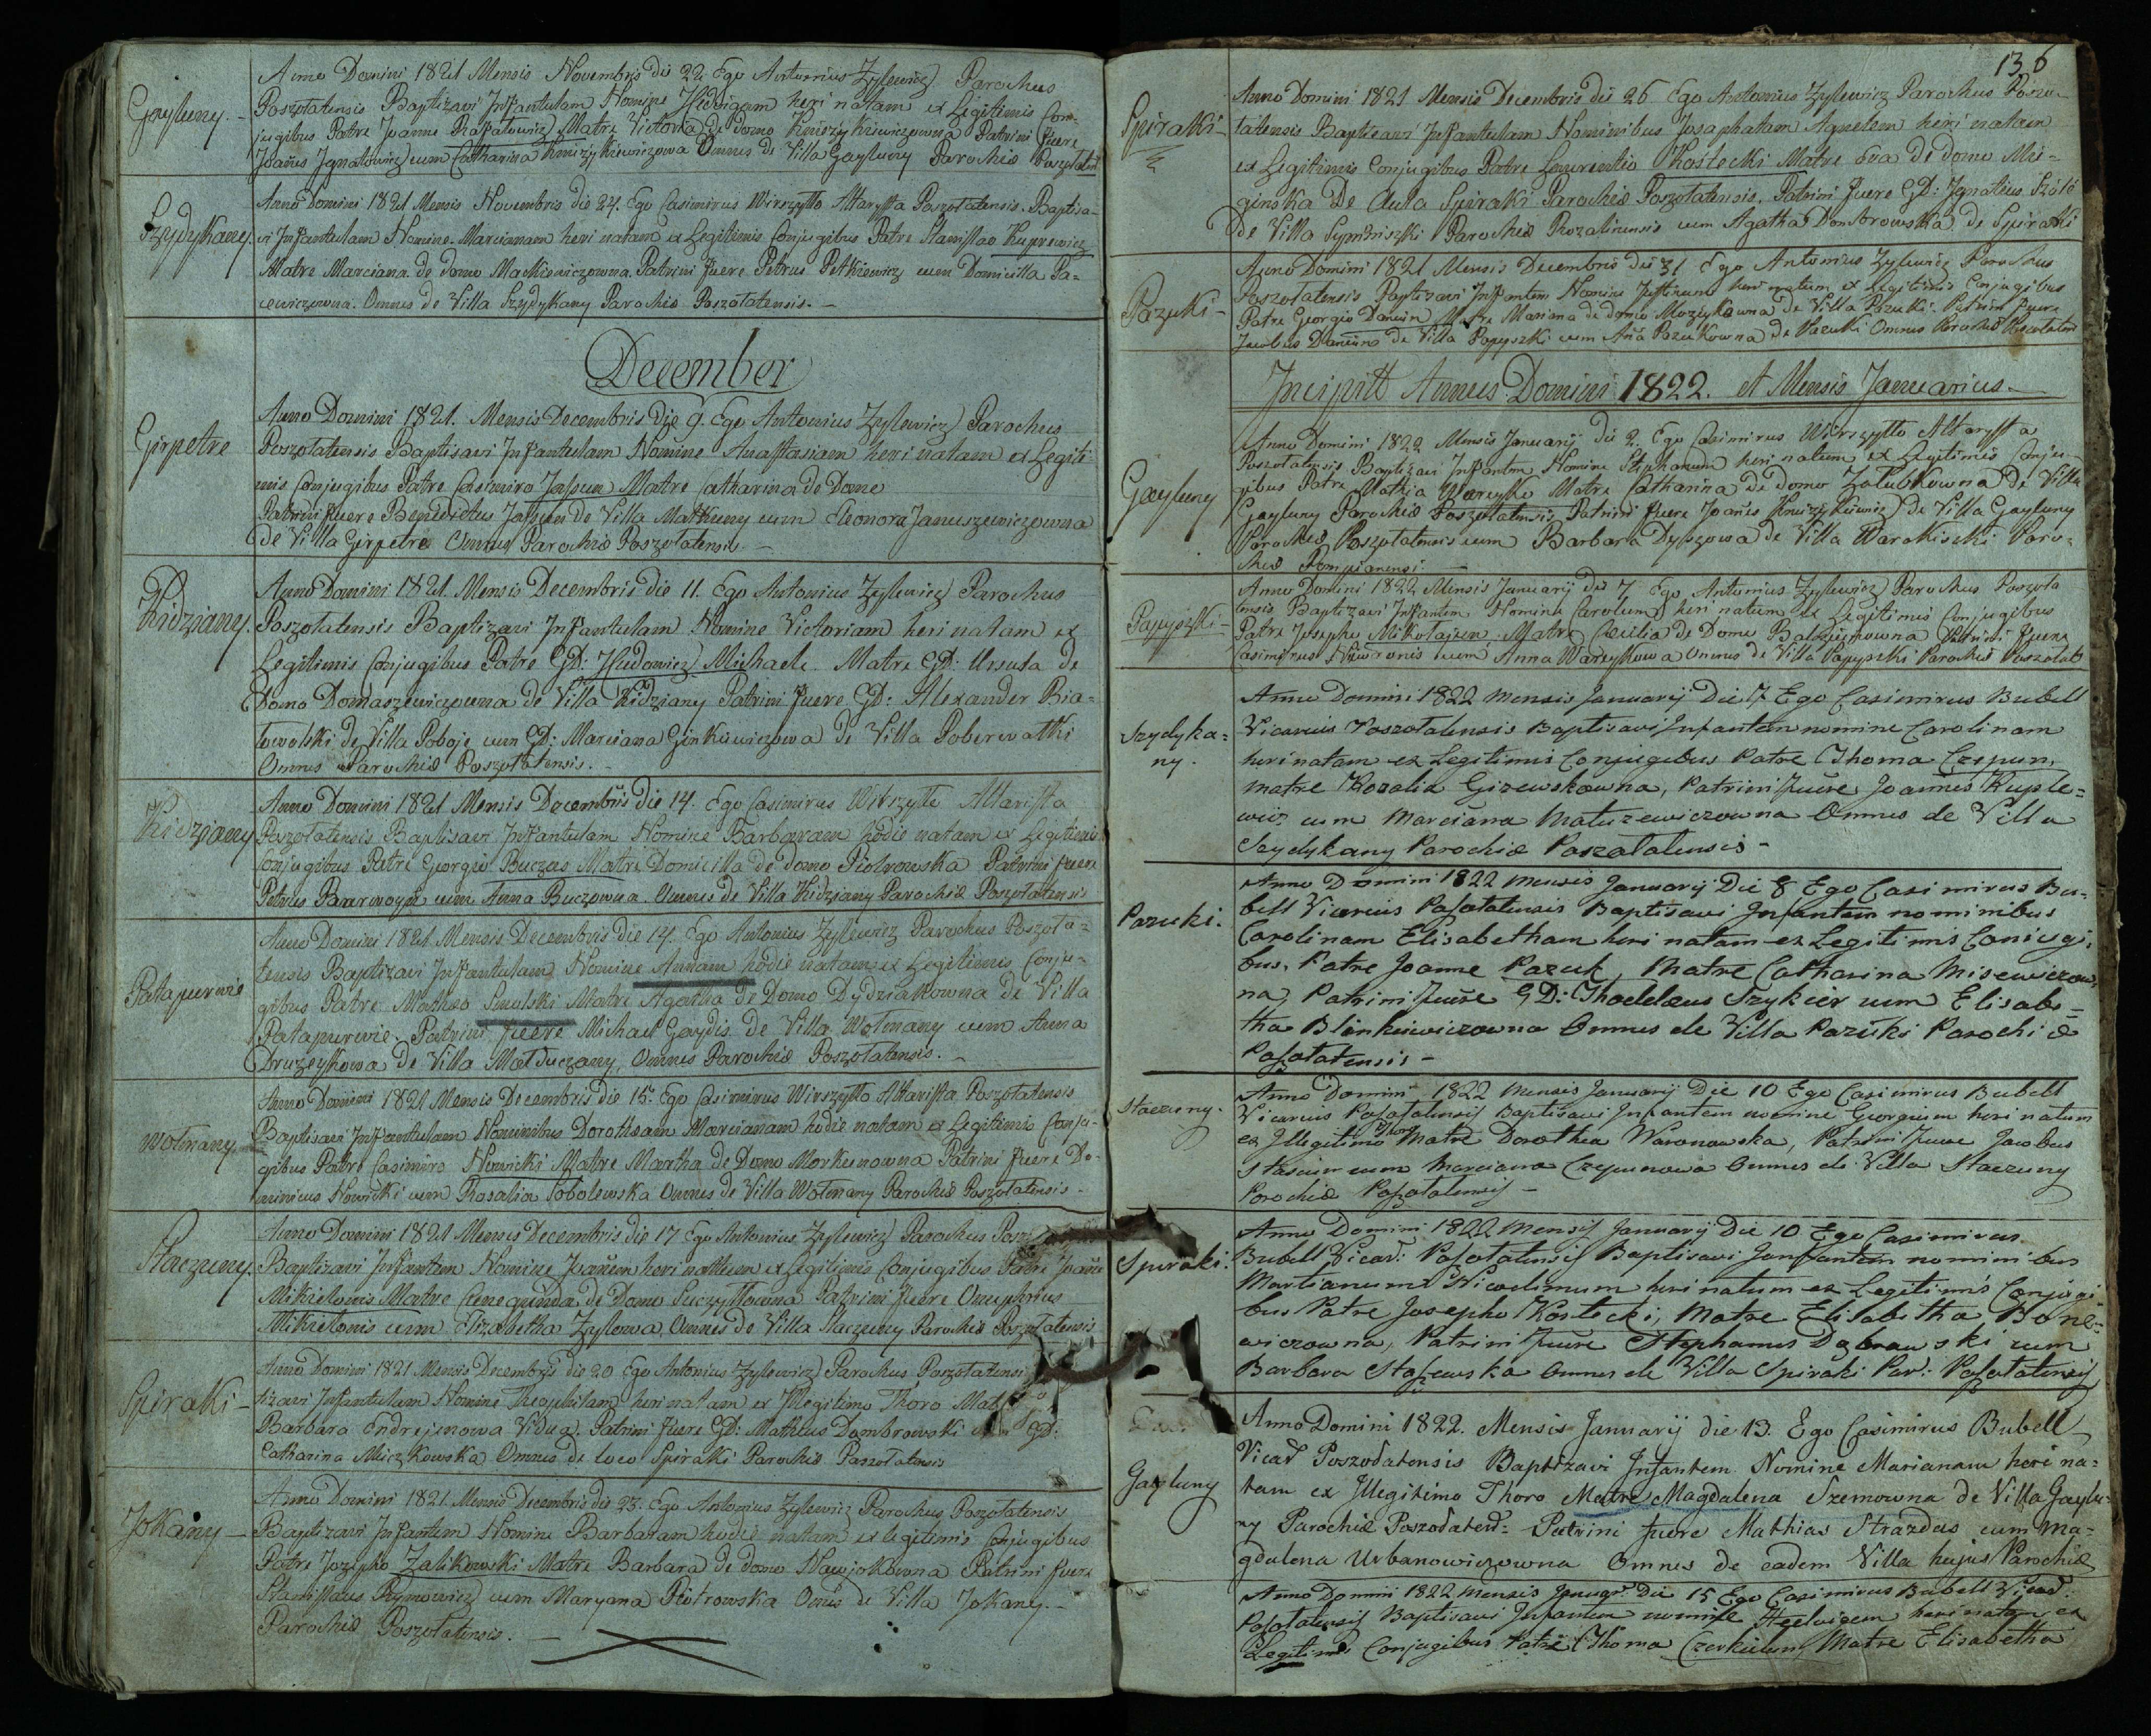 Gayluny.
Anno Domini 1821 Mensis Novembris die 22 Ego Antonius Zylewicz Parochus
Poszołatensis Baptizavi Infantulam Nomine Hedvigam heri natam ex Legitimis Con-
jugibus Patre Joanne Rafałowicz Matre Victoria de domo Kniżykiewiczowna Patrini fuere
Joañes Jgnatowicz cum Catharina Kniżykiewiczowa Omnes de Villa Gayluny Parochiæ Poszołaten
Szydykany.
Anno Domini 1821 Mensis Novembris die 24. Ego Casimirus Wirszyłło Altarysta Poszołatensis. Baptisa-
vi Infantulam Nomine Marcianam heri natam ex Legitimis Conjugibus Patre Stanislao Kuprewicz
Matre Marciana de domo Mackiewiczowna Patrini fuere Petrus Petkiewicz cum Domicilla Pa-
cewiczowna. Omnes de Villa Szydykany Parochiæ Poszołatensis.-
December
Girpetre
Anno Domini 1821. Mensis Decembris die 9. Ego Antonius Zylewicz Parochus
Poszołatensis Baptisavi Infantulam Nomine Anastasiam heri natam ex Legiti
mis Conjugibus Patre Casimiro Jasiun Matre Catharina de Domo
Patrini fuere Benedictus Jasiun de Villa Matkuny cum Eleonora Januszewiczowna
de Villa Girpetre Omnes Parochiæ Poszołatensis.-
Kidziany.
Anno Domini 1821. Mensis Decembris die 11. Ego Antonius Zylewicz Parochus
Poszołatensis Baptizavi Infantulam Nomine Victoriam heri natam ex
Legitimis Conjugibus Patre GD: Hudowicz Michaele. Matre GD: Ursula de
Domo Domaszewiczowna de Villa Kidziany Patrini fuere GD: Alexander Bia-
łowolski de Villa Poboje cum GD: Marciana Ginkiewiczowa de Villa Poberwałki
Omnes Parochiæ Poszołatensis.-
Kidziany
Anno Domini 1821 Mensis Decembris die 14. Ego Casimirus Wirszyłło Altarista
Poszołatensis Baptisavi Infantulam Nomine Barbaram hodie natam ex Legitimis
Conjugibus Patre Georgio Buczas Matre Domicilla de domo Piotrowska Patrini fuere
Petrus cum Anna Buczowna Omnes de Villa Kidziany Parochiæ Poszołatensis
Patapurwie
Anno Domini 1821 Mensis Decembris die 14. Ego Antonius Zylewicz Parochus Poszoła-
tensis Baptizavi Infantulam Nomine Annam hodie natam ex Legitimis Conju-
gibus Patre Matheo Smulski Matre Agatha de Domo Dydziakowna de Villa
Patapurwie. Patrini fuere Michael Gaydis de Villa Wołmany cum Anna
Druzeykowa de Villa Małduczany, Omnes Parochiæ Poszołatensis.-
Wołmany.
Anno Domini 1821 Mensis Decembris die 15. Ego Casimirus Wirszyłło Altarista Poszołatensis
Baptisavi Infantulam Nominibus Dorotheam Marcianam hodie natam ex Legitimis Conju-
gibus Patre Casimiro Nowicki Matre Martha de Domo Morkunowna Patrini fuere Do-
minicus Nowicki cum Rosalia Sobolewska Omnes de Villa Wołmany Parochiæ Poszołatensis-
Staczuny.
Anno Domini 1821 Mensis Decembris die 17 Ego Antonius Zylewicz Parochus
Baptizavi Infantem Nomine Joañem heri nattum ex Legitimis Conjugibus Patre Joañe
Mikielonis Matre Cunegunda de Domo Suczyłłowna Patrini fuere Onuphrius
Mikielonis cum Elizabetha Zylowa, Omnes de Villa Staczuny Parochiæ Poszołatensis
Spiraki-
Anno Domini 1821 Mensis Decembris die 20 Ego Antonius Zylewicz Parochus Poszołatensi
tizavi Infantulam Nomine Theophilam heri natam ex Illegitimo Thoro
Barbara Endrejunowa Vidua. Patrini fuere GD: Matheus Dombrowski GD:
Catharina Miczkowska Omnes de loco Spiraki Parochiæ Poszołatensis
Jokany-
Anno Domini 1821. Mensis Decembris die 23. Ego Antonius Zylewicz Parochus Poszołatensis
Baptizavi Infantem Nomine Barbaram hodie natam ex legitimis Conjugibus
Patre Jozepho Zalikowski Matre Barbara de domo Nawjokowna Patrini fuere
Stanislaus Rymowicz cum Maryana Piotrowska Omēs de Villa Jokany.-
Parochiæ Poszołatensis.-
136
Spiraki-
Anno Domini 1821 Mensis Decembris die 26 Ego Antonius Zylewicz Parochus Poszo-
łatensis Baptizavi Infantulam Nominibus Josaphatam Agnetem heri natam
ex Legitimis Conjugibus Patre Laurentio Kostecki Matre Eva de domo Mie-
ginska De Aula Spiraki Parochiæ Poszołatensis. Patrini fuere GD: Jgnatius Szóló
de Villa Parochiæ Rozalinensis cum Agatha Dombrowska de Spirakki
Pazuki-
Anno Domini 1821 Mensis Decembris die 31 Ego Antonius Zylewicz Parochus
Poszołatensis Baptizavi Infantem Nomine Justinum heri natum ex Legitimis Conjugibus
Patre Georgio Matre Mariana de domo Muzykowna de Villa Pazuki. Patrini fuere
Jacobus de Villa Papyszki cum Añã Pazukowna de Pazuki Omnes Parochiæ Poszołaten
Incipitt Annus Domini 1822. et Mensis Januarius.-
Gayluny
Anno Domini 1822 Mensis Januarij die 2. Ego Casimirus Wirszyłło Altarysta
Poszołatensis Baptizavi Infantem Nomine Stephanum heri natum ex Legitimis Conju-
gibus Patre Mathia Matre Catharina de domo Załubkowna de Villa
Gayluny Parochiæ Poszołatensis Patrini fuere Joañes Kniżykiewicz de Villa Gayluny
Parochiæ Poszołatensis cum Barbara Dyszowa de Villa Warokiszki Paro-
chiæ
Papyszki-
Anno Domini 1822 Mensis Januarij die 7 Ego Antonius Zylewicz Parochus Poszoła
tensis Baptizavi Infantem Nomine Carolum heri natum ex Legitimis Conjugibus
Patre Josepho Mikołajun Matre Cæcilia de Domo Patrini fuere
Casimirus cum Anna Omnes de Villa Papyszki Parochiæ Poszołat
Szydyka-
ny.
Anno Domini 1822 Mensis Januarij Die 7 Ego Casimirus Bubell
Vicarius Poszołatensis Baptisavi Infantem nomine Carolinam
heri natam ex Legitimis Conjugibus Patre Thoma Czepun,
matre Rozalia Gizewskowna, Patrini fuere Joannes Kuple-
wicz cum Marciana Matuzewiczowna Omnes de Villa
Szydykany Parochiæ Poszołatensis-
Pazuki.
Anno Domini 1822 Mensis Januarij Die 8 Ego Casimirus Bu-
bell Vicarius Posołatensis Baptisavi Infantem nominibus
Carolinam Elisabetham heri natam ex Legitimis Coniugi-
bus, Patre Joanne Pazuk, Matre Catharina Misewiczow-
na, Patrini fuere GD: Thaddæus Szykier cum Elisabe-
tha Blinkiewiczowna Omnes de Villa Pazuki Parochiæ
Posołatensis-
Staczuny.
Anno Domini 1822 Mensis Januarij Die 10 Ego Casimirus Bubell
Vicarius Baptisavi Infantem nomine Georgium heri natum
ex Illegitimo Thoro Matre Dorothea Waronowska, Patrini fuere Jacobus
Stasiun cum Marciana Czepunowa Omnes de Villa Staczuny
Parochiæ
Spiraki.
Anno Domini 1822 Mensis Januarij Die 10 Ego Casimirus
Bubell Vicar: Baptisavi Infantem nominibus
Martianum Nicodimum heri natum ex Legitimis Conjugi
bus Patre Josepho Kostecki, Matre Elisabetha
wiczowna, Patrini fuere Stephanus Dąbrowski cum
Barbara Staszewska Omnes de Villa Spiraki Par:
Gayluny
Anno Domini 1822. Mensis Januarij die 13. Ego Casimirus Bubell
Vicař Poszodatensis Baptizavi Infantem Nomine Marianam heri na-
tam ex Illegitimo Thoro Matre Magdalena Szemowna de Villa Gaylu-
ny Parochiæ Patrini fuere Mathias Strazdas cum Ma-
gdalena Urbanowiczowna Omnes de eadem Villa hujus Parochiæ
Anno Domini 1822 Mensis Januar: Die 15 Ego Casimirus Bubell Vicař:
Baptisavi Infantem nomine Hedvigem heri natam ex
Legitimis Conjugibus Patre Thoma Matre Elisabetha